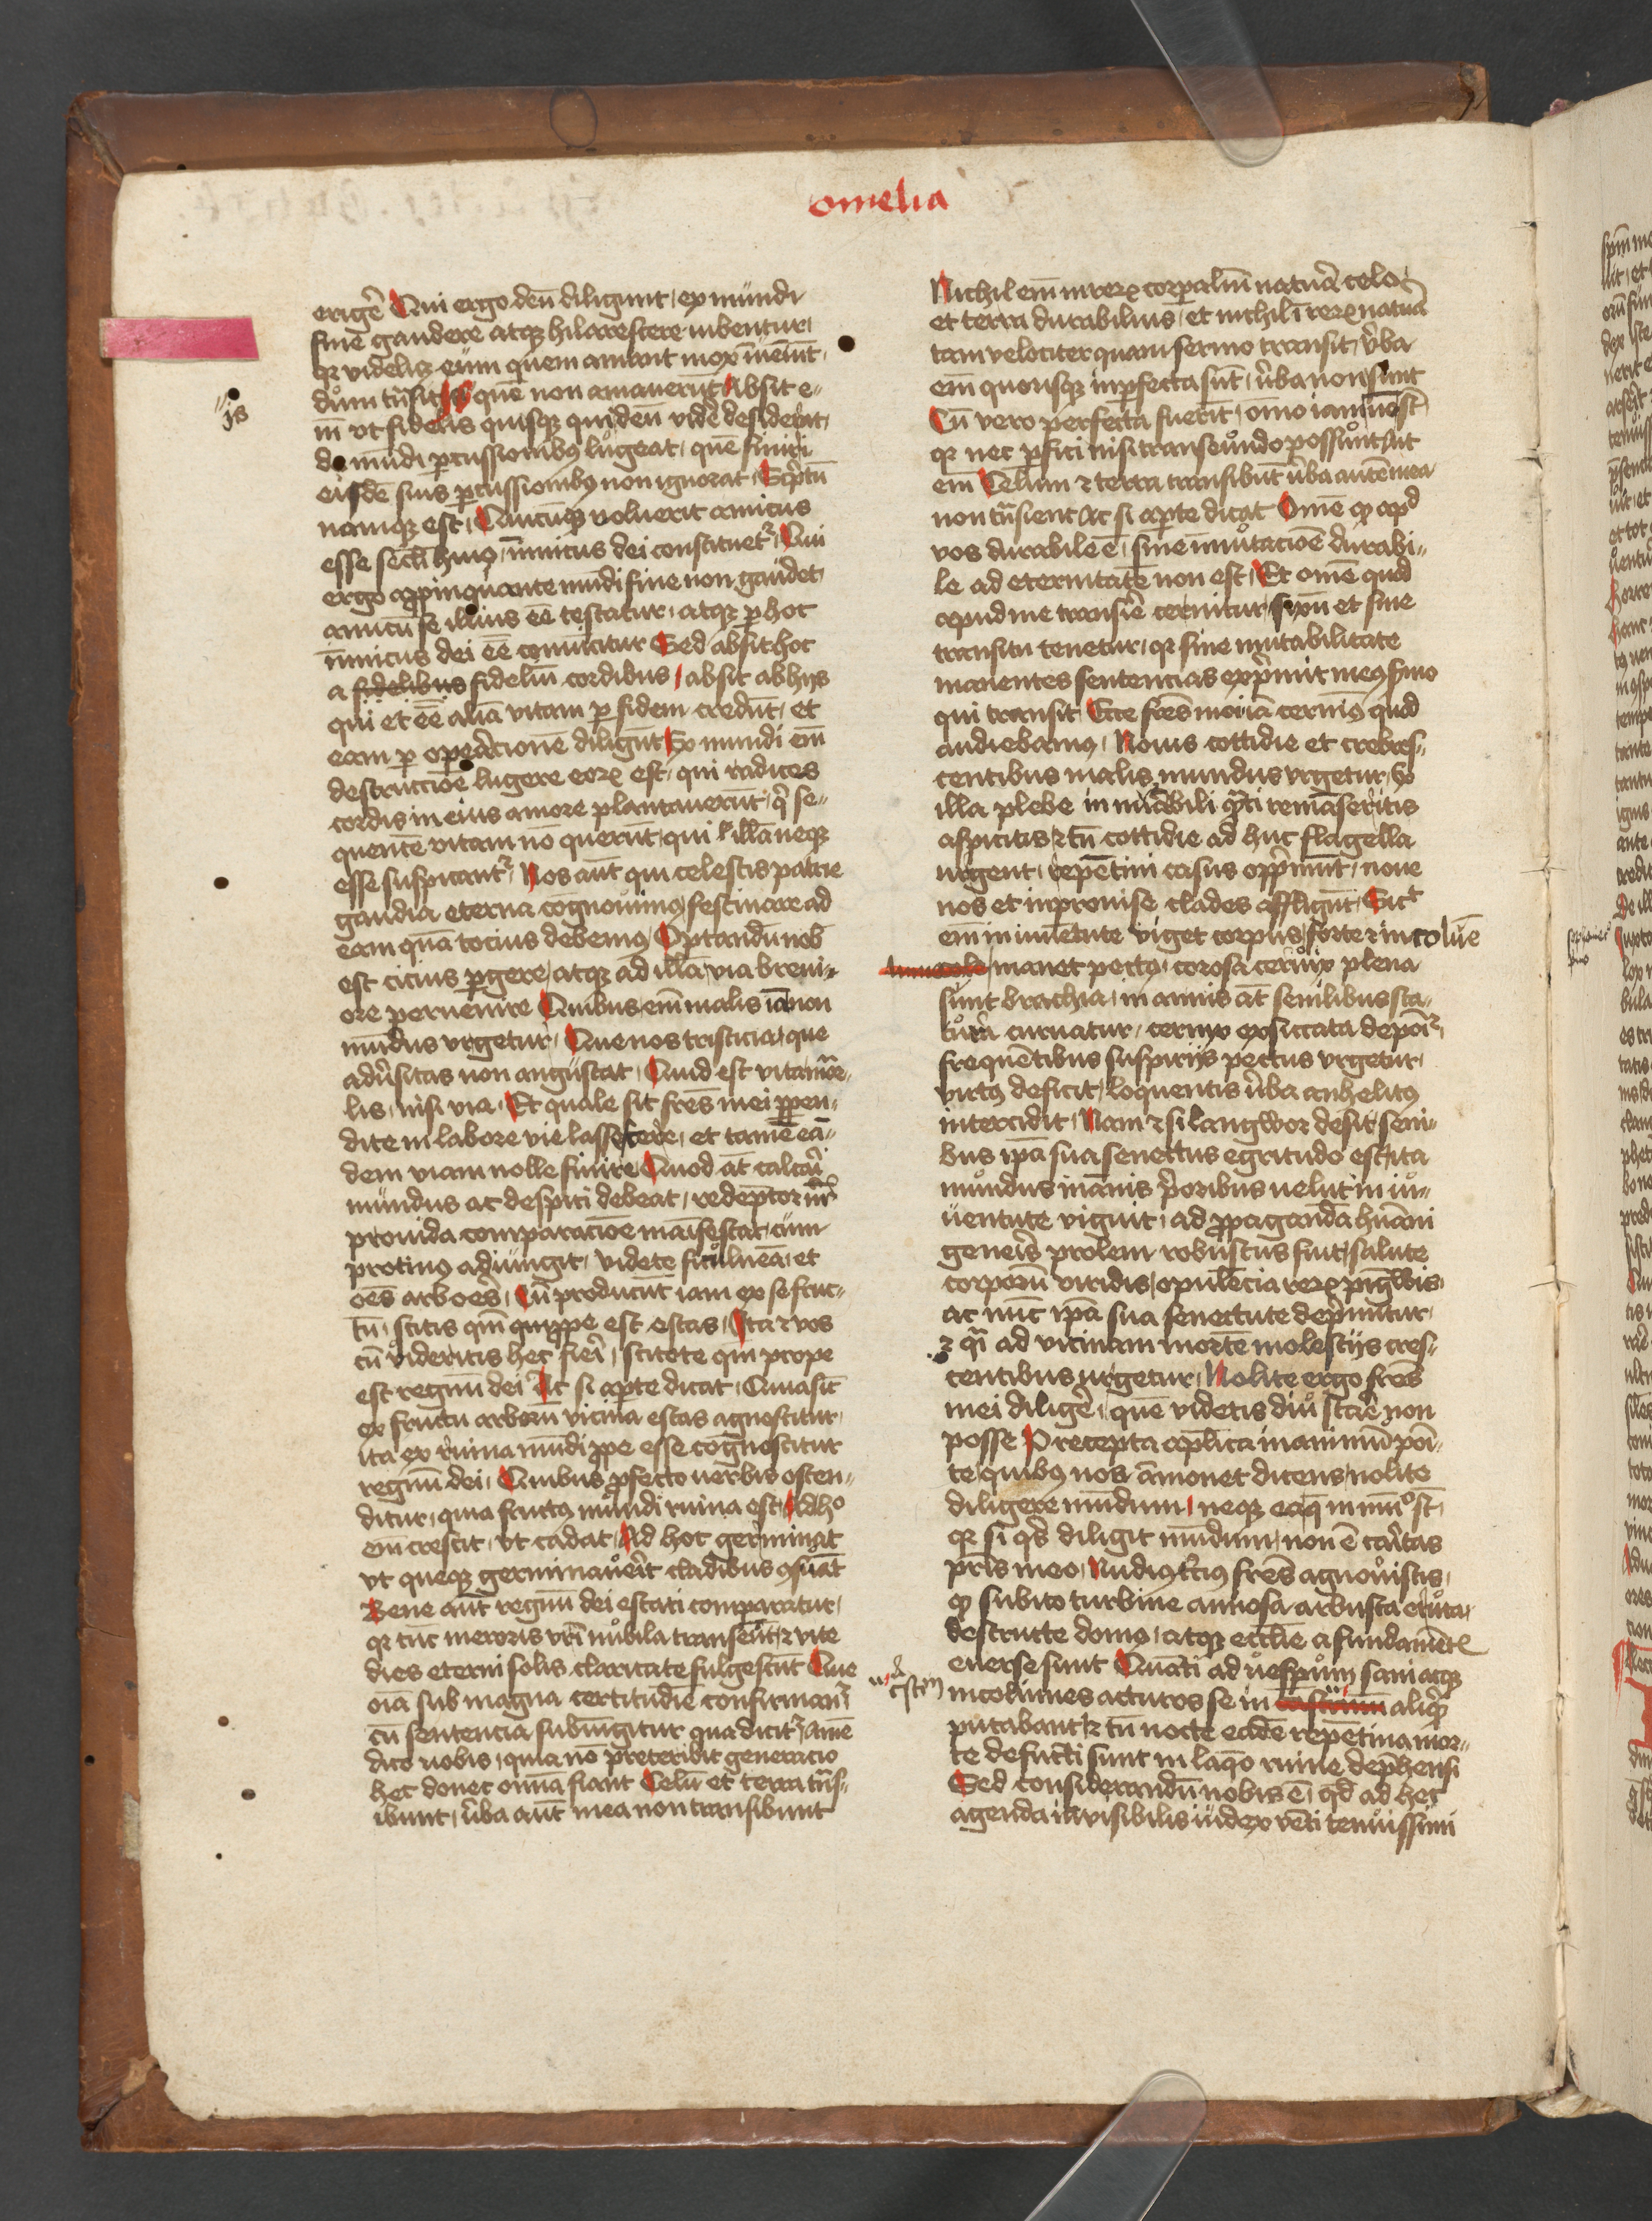 omelia
erigē Qui ergo deū diligunt, ex mundi
fine gaudere atqz hilarescere iubentur,
qr videlicz eum quem amant mox īueniūt,
dum trāsit is quē non amauerūt Absit e-
js
ī vt fidelis quisqz qui deū vidē desiderat,
de mūdi pcussionibus lugeat, quē finiri
eisdē suis pcussionibus non ignorat, Scptū
namqz est, Quicūqz voluerit amicus
esse secli huius, inimicus dei constituetur, Qui
ergo appinquante mūdi fine non gaudet,
amicū se illius eē testatur, atqz p hoc
inimicus dei eē conuincitur Sed absit hoc
a fidelibus fideliū cordibus, absit ab hijs
qui et eē aliā vitam p fidem credūt, et
eam p operacionē diligūt Ex mundi eī
destruccioē lugere eorum est, qui radices
cordis in eius amore plantauerūt, q se-
quentē vitam nō querūt, qui illā neqz
esse suspicantur, Nos aūt qui celestis patrie
gaudia eterna cognouimus festinare ad
eam quātocius debemus, Optandū nob
est cicius pgere, atqz ad illā via breui-
ore peruenire Quibus eīm malis iā non
mūdus vrgetur, Que nos tristicia, que
adūsitas non angustat, Quid est vita mor-
lis, nisi via, Et quale sit frēs mei ppen-
dite in labore vie lassescere, et tamē eā-
dem viam nolle finire Quod āt calcari
mundus ac despici debeat, redēptor nr
prouida comparacioē maīfestat, cum
protinus adiungit, videte ficulneā, et
oēs arbores, Cū producūt iam ex se fruc-
tū, scitis qm quippe est estas, Ita z vos
cū videritis hec fieri, scitote qm prope
est regnū dei Ac si apte dicat, Quia sic
ex fructu arborū vicina estas agnoscitur,
ita ex ruina mūdi ppe esse cognoscitur
regnū dei, Quibus pfecto uerbis osten-
ditur, quia fructus mūndi ruina est, Ad ho
eī crescit, vt cadat, Ad hoc germinat
vt queqz germinauerit cladibus 9sumat
Bene aūt regnū dei estati comparatur,
qr tūc meroris vrī nubila transeūt, z vite
dies eterni solis claritate fulgescūt Que
oīa sub magna certitudīe confirmant
cū sentencia subiungitur qua dicitur, Amē
dico uobis, quia nō preteribit generacio
hec donec omia fiant Celū et terra trās-
ibunt, uba aūt mea non transibunt
Nichil eīm in rerum corpaliū natura celo
et terra durabilius, et nichil ī rerum natura
tam velociter quam sermo transit, ūba
eī quousqz inpfecta sūt, ūba non sunt
Cū vero perfecta fuerīt, omo iam nō sūt
qr nec pfici nisi transeundo possūt Ait
eī Celum z terra transibūt ūba autē mea
non trāsient Ac si apte dicat Omē qd apd
vos durabile ē, sine immutacioē durabi-
le ad eternitatē non est, Et omē quod
apud me transire cernitur, fixū et sine
transitu tenetur, qr sine mutabilitate
manentes sentencias exprimit meus smo
qui transit, Ecce frēs mei iā cernimus quod
audiebamus, Nouis cottidie et crebres-
centibus malis mundus vrgetur, Ex
illa plebe innumabili qnti remāseritis
aspicitis z tn cottidie ad huc flagella
urgent, repētini casus opprimūt, noue
nos et inprouise clades affligūt, Sic
eī in iuuētute viget corpus, forte z in coluē
manet pectus, corosa ceruix plena
sunt brachia, in annis āt senilibus sta-
tura curuatur, ceruix exsiccata depoīr,
frequētibus suspirijs pectus vrgetur,
virtus deficit, loquentis ūba anhelitus
intercidit, Nam z si langwor desit, seni-
bus ipā sua senectus egritudo est, ita
mundus in annis prioribus uelut in iu-
uentute viguit, ad ppagandā humāi
generis prolem robustus fuit, salute
corporū viridis, opulēcia rerum pīgwis,
ac nūc ipā sua senectute depmitur,
z qi ad vicinam mortē molestijs cres-
centibus urgetur, Nolite ergo frēs
mei diligē, quē videtis diu stare non
posse Precepta aplica in animū pōi-
te, quibus nos āmonet dicens, nolite
diligere mūdum, neqz eaq in mūo st,
qr si qs diligit mūdum, non ē caritas
pris in eo, Nudiustcius frēs agnouistis,
qd subito turbine annosa arbusta eruta,
destructe domus, atqz ecclie a fundamēt
euerse sunt Quāti ad uespum sani atqz
incolumes acturos se in aliqd
putabant, z tn nocte eadē repētina mor-
te defuncti sunt in laqo ruine dephensi
Sed considerandū nobis ē, qd ad hec
agenda invisibilis iudex vēti tenuissimi